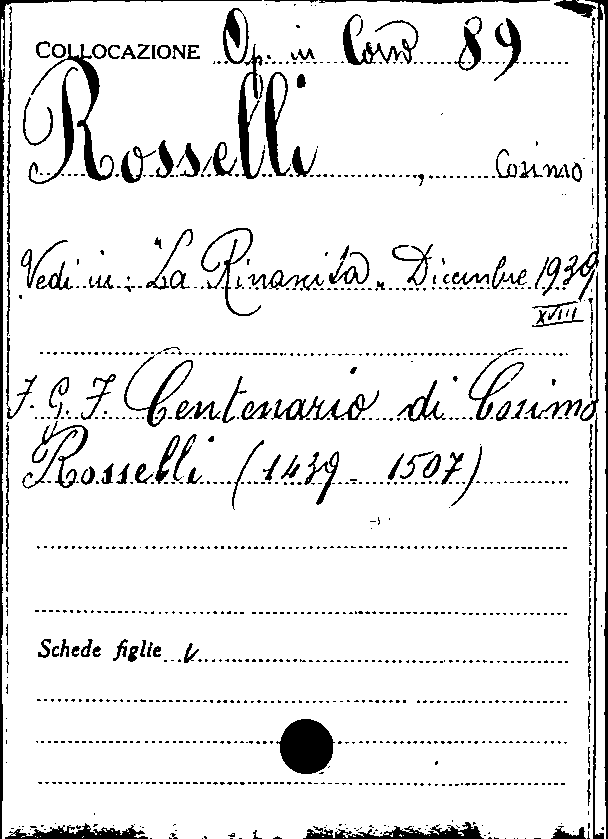 COLLOCAZIONE Op. in Corso 89
Rosselli, Cosimo
Vedi in: "La Rinascita" Dicembre 1939
XVIII
J. G. F. Centenario di Cosimo
Rosselli (1439 - 1507)
Schede figlie V